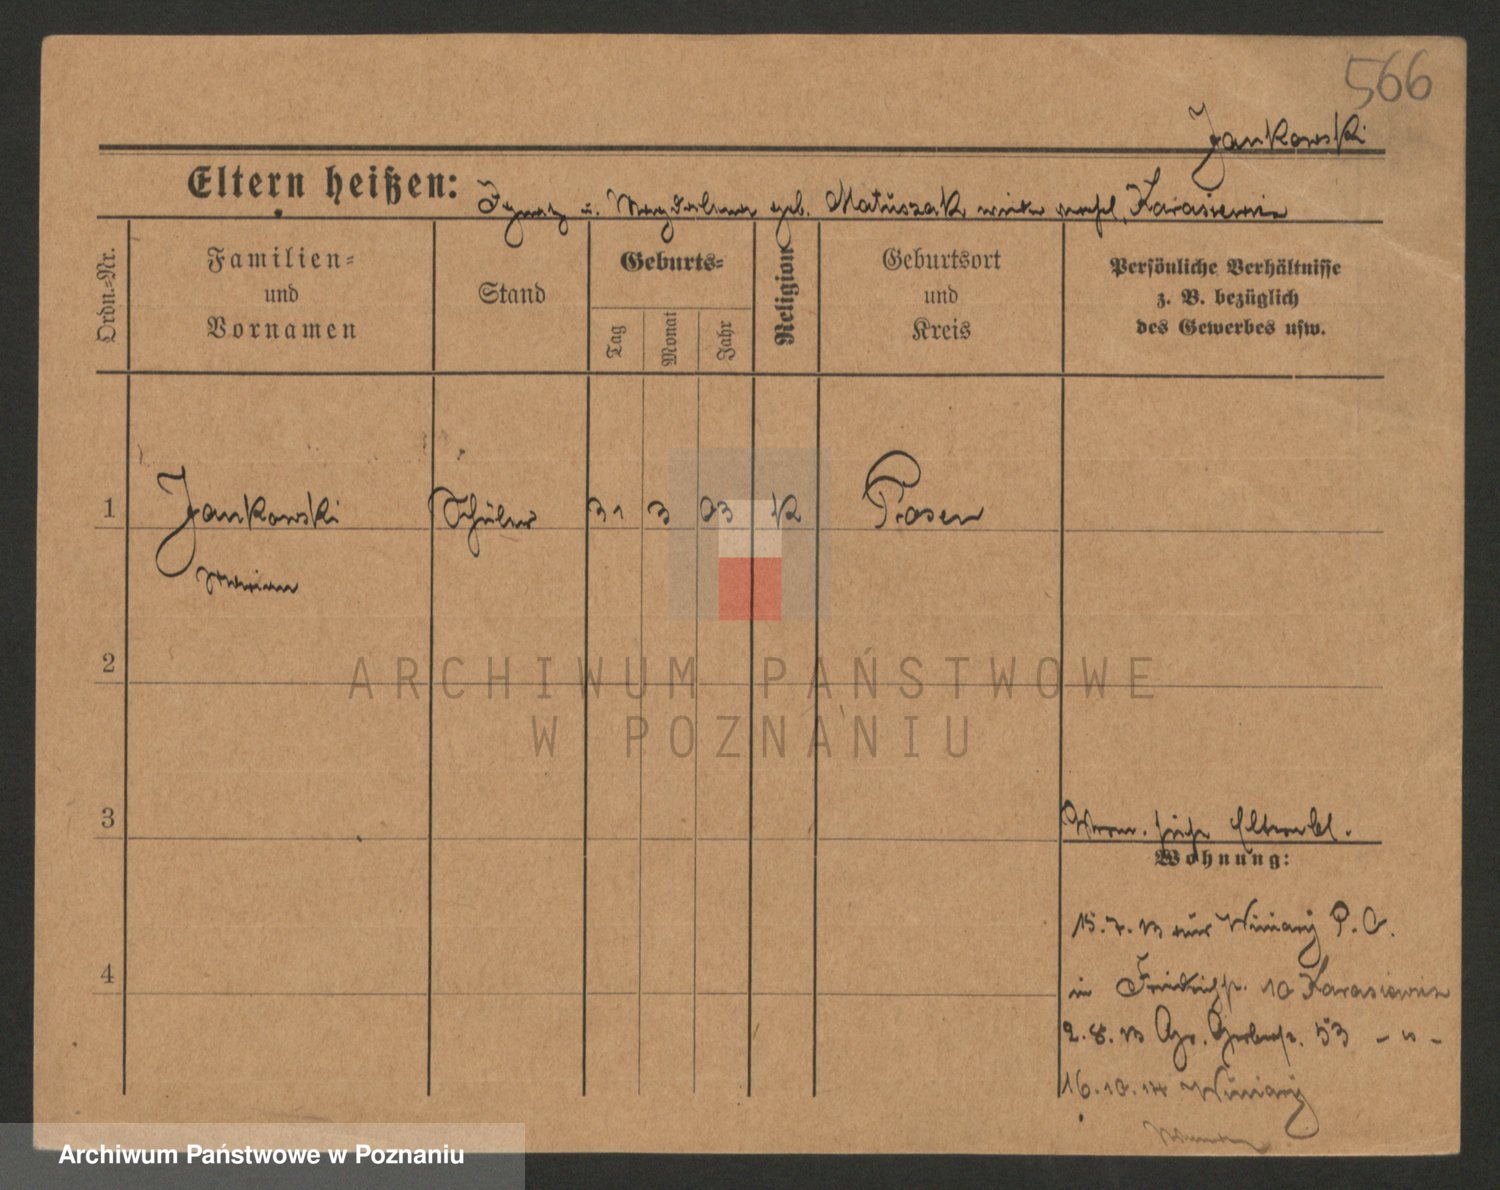 566
Jankowski
Eltern heißen: Ignatz u. Magdalena geb. Matuszak wieder verehl. Karasiewicz
Ordn.=Nr.
Familien=
und
Vornamen
Stand
Geburts=
Tag
Monat
Jahr
Religion
Geburtsort
und
Kreis
Persönliche Verhältnisse
z. B. bezüglich
des Gewerbes usw.
1 Jankowski Schüler 31 3 03 K Posen
Marian
2
ARCHIWUM PAŃSTWOWE
W POZNANIU
3
Verm. siehe Elternbl.
Wohnung:
15.7.13 aus Winiary P. O.
4
in Friedrichstr. 10 Karasiewicz
2.8.13 Gr. Gerberstr. 53 - " -
16.10.14 Winiary
Archiwum Państwowe w Poznaniu